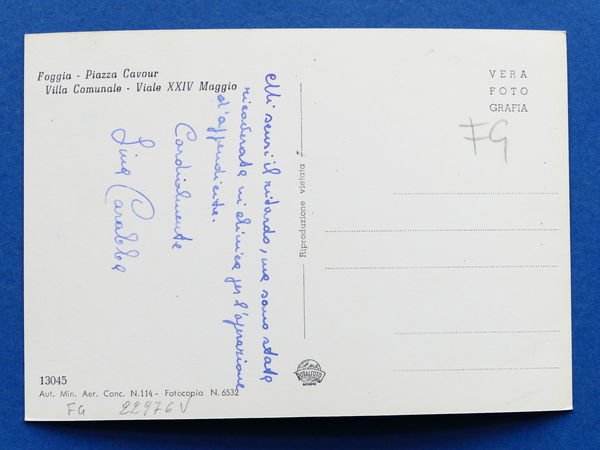 Foggia - Piazza Cavour
Villa Comunale - Viale XXIV Maggio
Mi scusi il ritardo, ma sono stata
ricoverata in clinica per l'operazione
d'appendicite.
Cordialmente
Lina Carabba
Riproduzione vietata
VERA
FOTO
GRAFIA
FG
ROTALFOTO
MILANO
13045
Aut. Min. Aer. Conc. N.114 - Fotocopia N. 6532
FG 22976 V